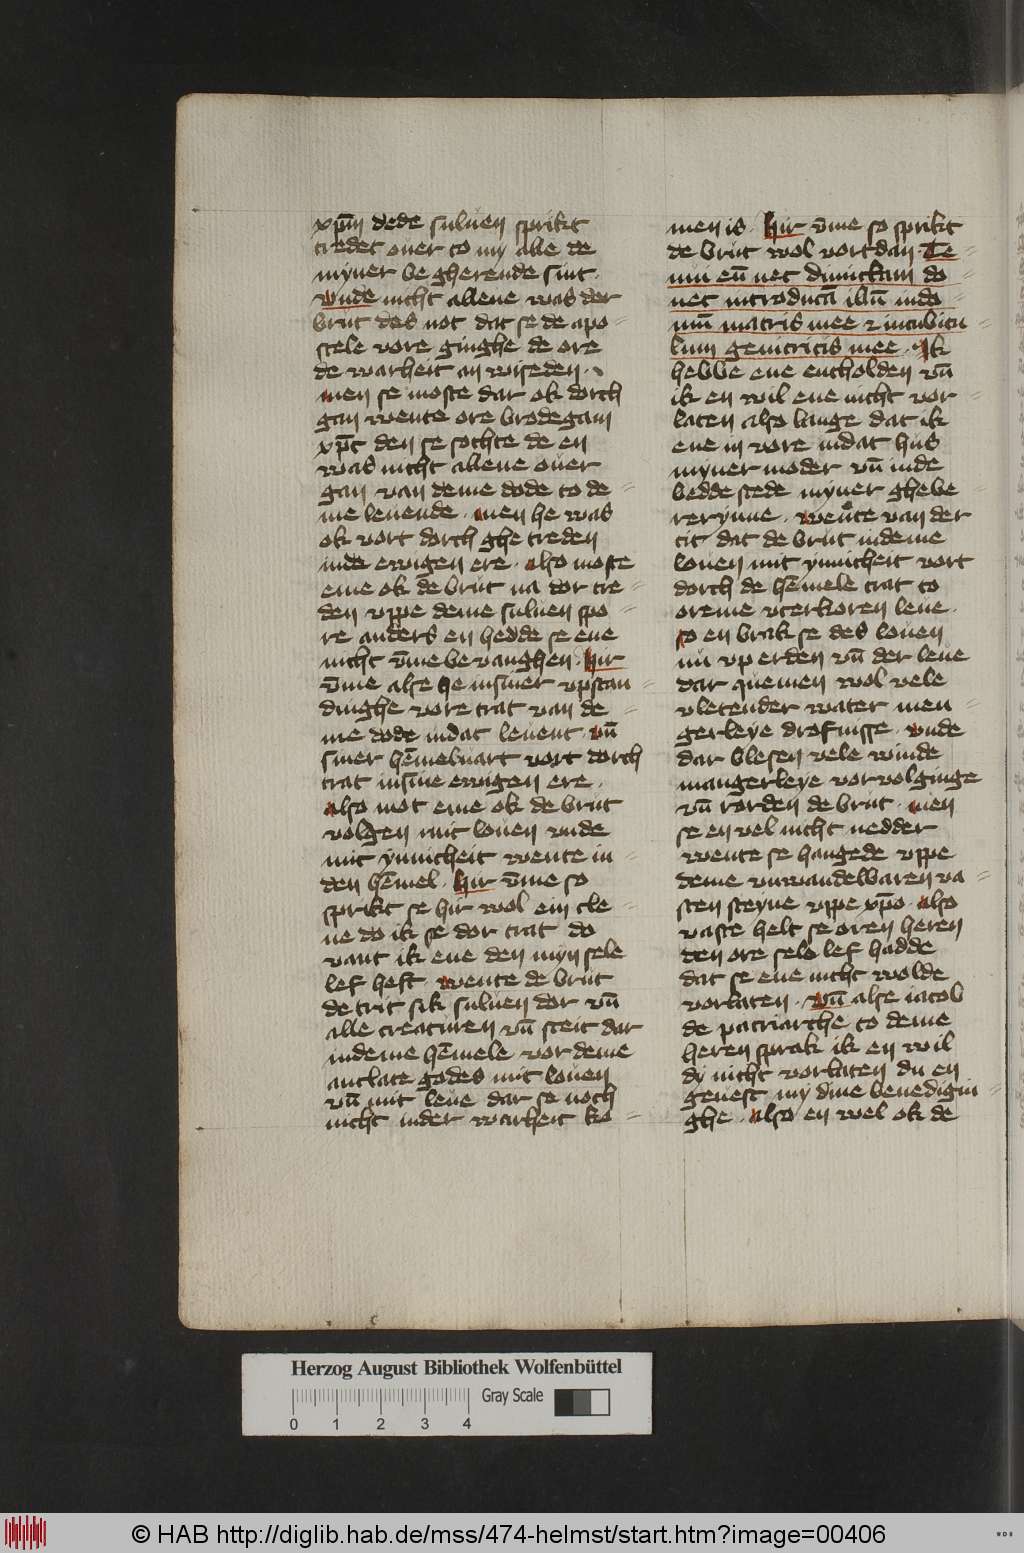 xp̄m dede suluen sprikt
tredet ouer to my alle de
myner be gherende sint
vnde nicht allene was der
brut des not dat se de apo=
stele vore ginghe de ore
de warheit an wiseden
men se moste dar ok dorch
gan wente ore brodegam
xp̄c den se sochte de en
was nicht allene ouer
gan van deme dode to de=
me leuende · men he was
ok vort dorch ghe treden
inde ewigen ere · also moste
eme ok de brut na dor tre=
den vppe deme suluen spo=
re anders en hedde se ene
nicht v̄me be vanghen · hir
v̄me alse he in siner vpstan=
dinghe vore trat van de=
me dode in dat leuent · vn̄
siner hēmeluart vort dorch
trat in sine ewigen ere ·
also mot eme ok de brut
volgen mit louen vnde
mit ynnicheit wente in=
den hēmel · hir v̄me so
sprikt se hir wol ein cle=
ne do ik se dor trat do
vant ik ene den myn sele
lef heft wente de brut
de trit sik suluen dor vn̄
alle creaturen vn̄ steit dar
in deme hēmele vor deme
antlate godes mit louen
vn̄ mit leue dar se noch
nicht in der warheit ko=
men is · hir v̄me so sprikt
de brut wol vort dan Te=
nui eū nec dimittam do=
nec introducā illū in do=
mū matris mee et in cubicu=
lum genitricis mee · Ik
hebbe ene entholden vn̄
ik en wil ene nicht vor=
laten also lange dat ik
ene in vore in dat hus
myner moder vn̄ in de
bedde stede myner ghebe=
rerynne · wente van der
tit dat de brut in deme
louen mit ynnicheit vort
dorch de hēmele trat to
oreme vterkoren leue ·
so en brak se des louen
nu vp erden vn̄ der leue
dar quemen wol vele
vletender water men=
gerleye drofnisse · vnde
dar blesen vele winde
mangerleye vorvolginge
vn̄ rorden de brut · men
se en vel nicht nedder
wente se hangede vppe
deme vnwandelbaren va=
sten steyne vppe xp̄o · also
vaste helt se oren heren
den ore sele lef hadde
dat se ene nicht wolde
vorlaten · vn̄ alse iacob
de patriarche to deme
heren sprak ik en wil
dy nicht vorlaten du en
geuest my dine benedigin=
ghe · also en wel ok de
Herzog August Bibliothek Wolfenbüttel
Gray Scale
0 1 2 3 4
© HAB http://diglib.hab.de/mss/474-helmst/start.htm?image=00406
WDB